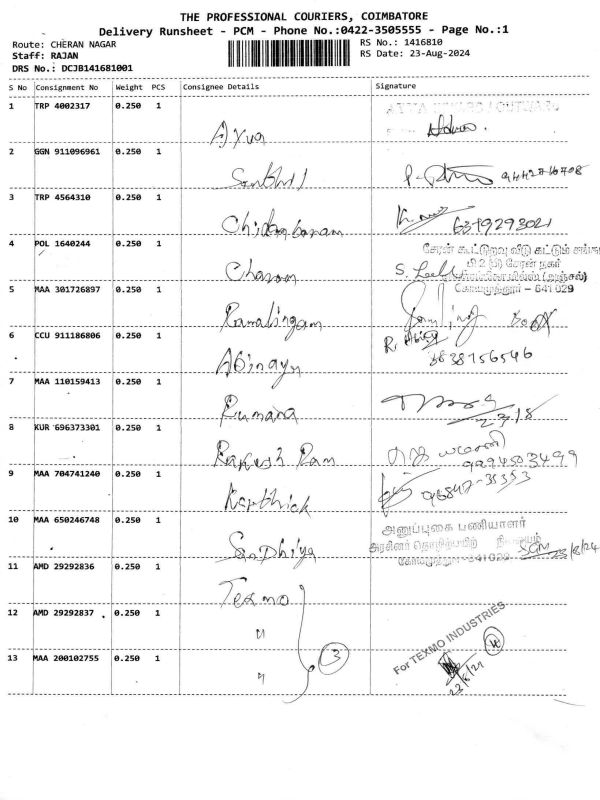 THE PROFESSIONAL COURIERS, COIMBATORE
Delivery Runsheet - PCM - Phone No.:0422-3505555 - Page No.:1
Route: CHERAN NAGAR
RS No.: 1416810
Staff: RAJAN
RS Date: 23-Aug-2024
DRS No.: DCJB141681001
S No Consignment No Weight PCS Consignee Details Signature
1 TRP 4002317 0.250 1 Ayya
2 GGN 911096961 0.250 1 Senthil
3 TRP 4564310 0.250 1 Chidambaram 6379293021
4 POL 1640244 0.250 1 Charan
சேரன் கூட்டுறவு வீடு கட்டும்
கோயமுத்தூர் - 641 029
5 MAA 301726897 0.250 1 Ramalingam
6 CCU 911186806 0.250 1 Abinaya 3838756546
7 MAA 110159413 0.250 1 Rumana
8 KUR 696373301 0.250 1 Rakesh Ram 9994503499
9 MAA 704741240 0.250 1 Karthick 96847-35353
10 MAA 650246748 0.250 1 Sandhiya
அனுப்புகை பணியாளர்
11 AMD 29292836 0.250 1 Texmo
12 AMD 29292837 0.250 1 "
13 MAA 200102755 0.250 1 "
3
For TEXMO INDUSTRIES